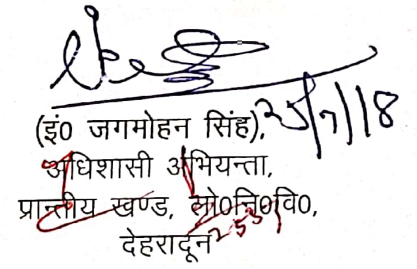 (इं0 जगमोहन सिंह), 25/7/18
अधिशासी अभियन्ता,
प्रान्तीय खण्ड, लो0नि0वि0,
देहरादून